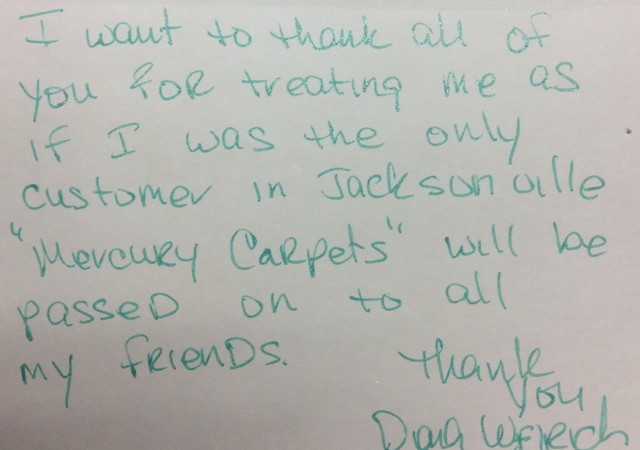 I want to thank all of
you for treating me as
if I was the only
customer in Jacksonville
"Mercury Carpets" will be
passed on to all
my friends. Thank
you